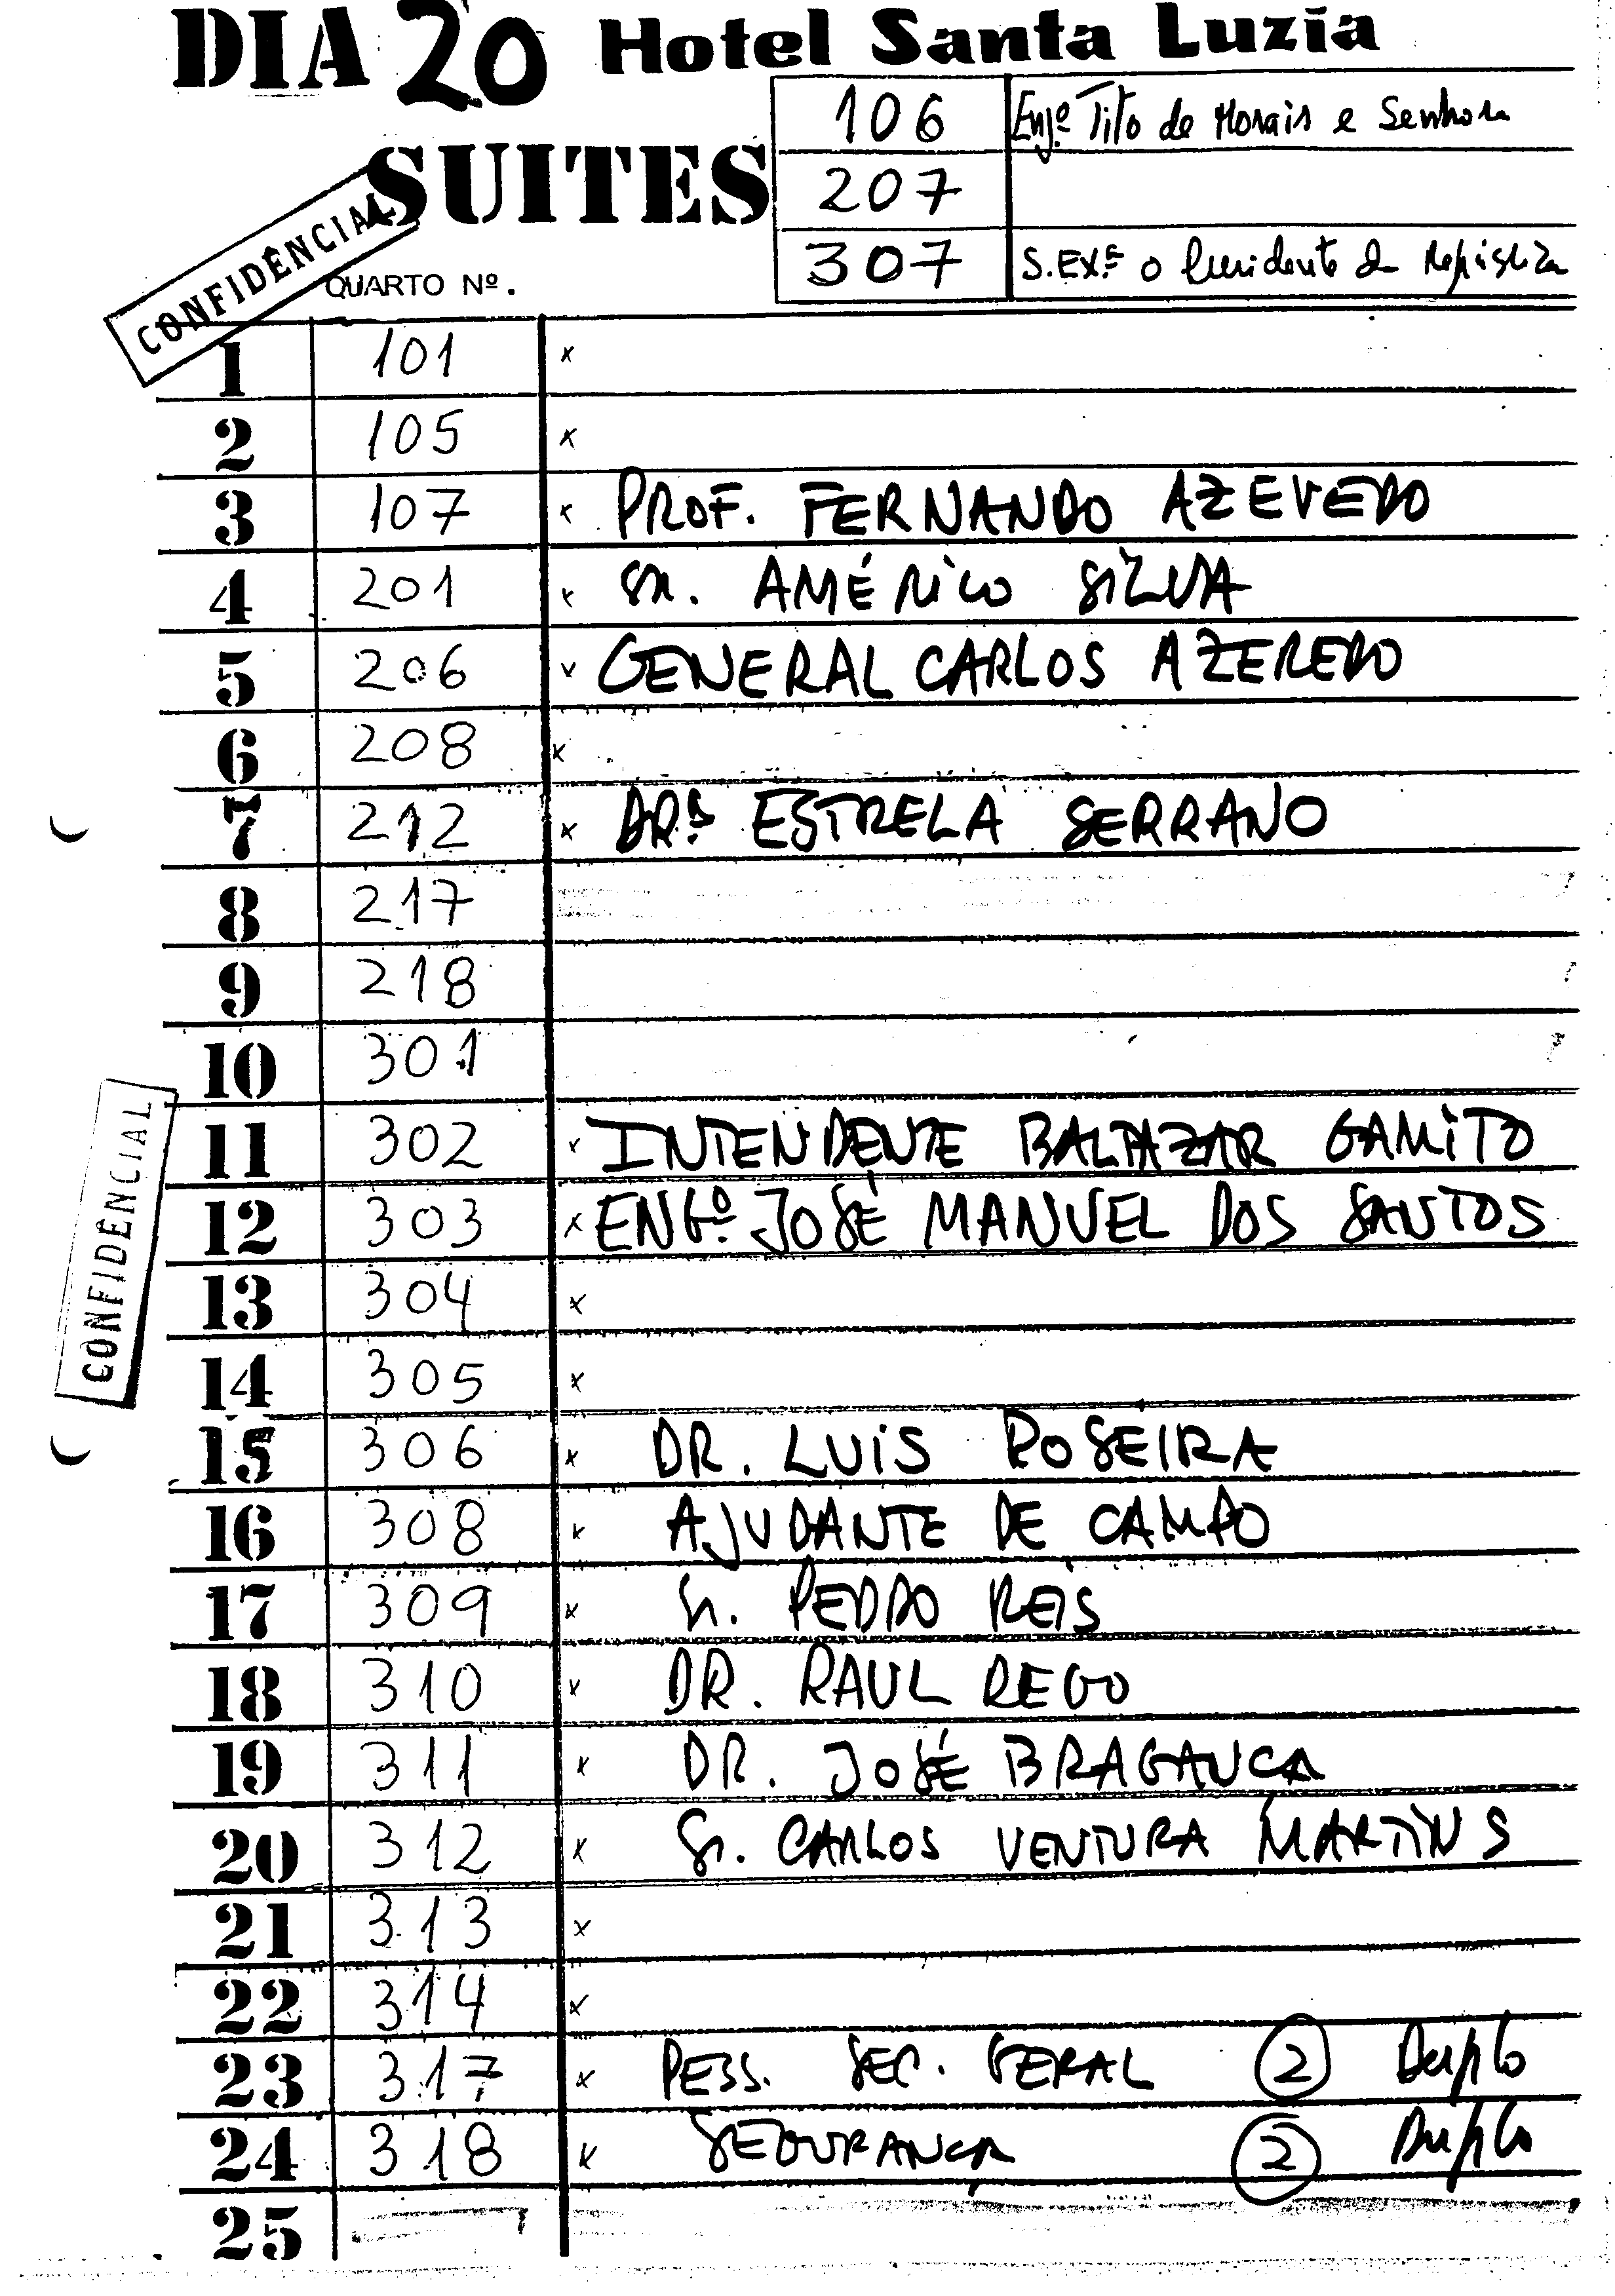 DIA 20 Hotel Santa Luzia
SUITES
106 Engº Tito de Morais e Senhora
207
307 S. EXª o Presidente da República
CONFIDÊNCIAL
QUARTO Nº.
1 101 x
2 105 x
3 107 x PROF. FERNANDO AZEVEDO
4 201 x SR. AMÉRICO SILVA
5 206 x GENERAL CARLOS AZEREDO
6 208 x
7 212 x DRª ESTRELA SERRANO
8 217
9 218
10 301
11 302 x INTENDENTE BALTAZAR GAMITO
12 303 x ENGº JOSÉ MANUEL DOS SANTOS
13 304 x
14 305 x
CONFIDÊNCIAL
15 306 x DR. LUIS ROSEIRA
16 308 x AJUDANTE DE CAMPO
17 309 x Sr. PEDRO REIS
18 310 x DR. RAUL REGO
19 311 x DR. JOSÉ BRAGANCA
20 312 x Sr. CARLOS VENTURA MARTINS
21 313 x
22 314 x
23 317 x PESS. SEC. GERAL 2 Duplo
24 318 x SEGURANCA 2 Duplo
25